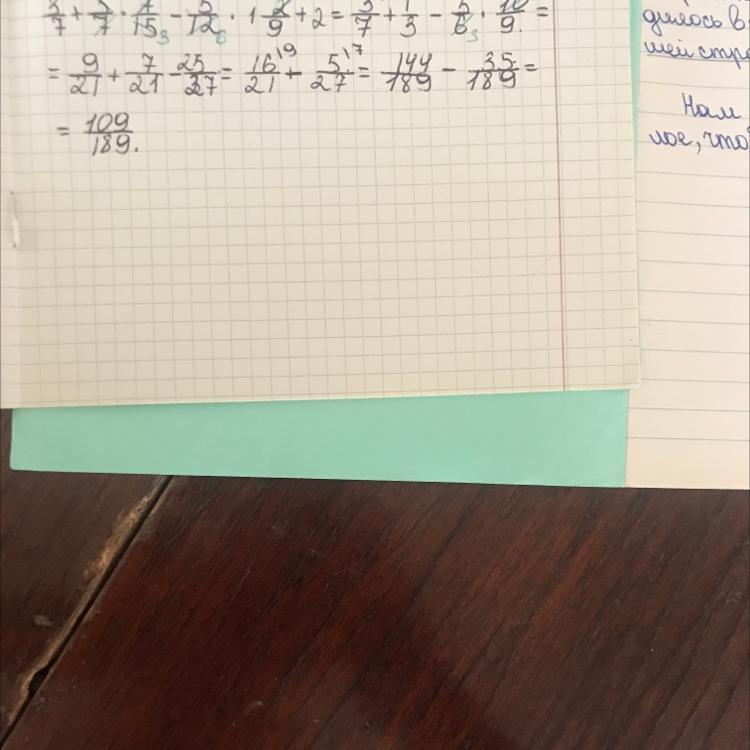 3/7 + 5/7 · 7/15 3 − 5/12 6 · 1 2/9 + 2 = 3/7 + 1/3 − 5/6 3 · 10/9 =
= 9/21 + 7/21 − 25/27 = 16/21 \9 + 5/27 \7 = 144/189 − 35/189 =
= 109/189.
дилось в
шей стра
Нам
лое, что